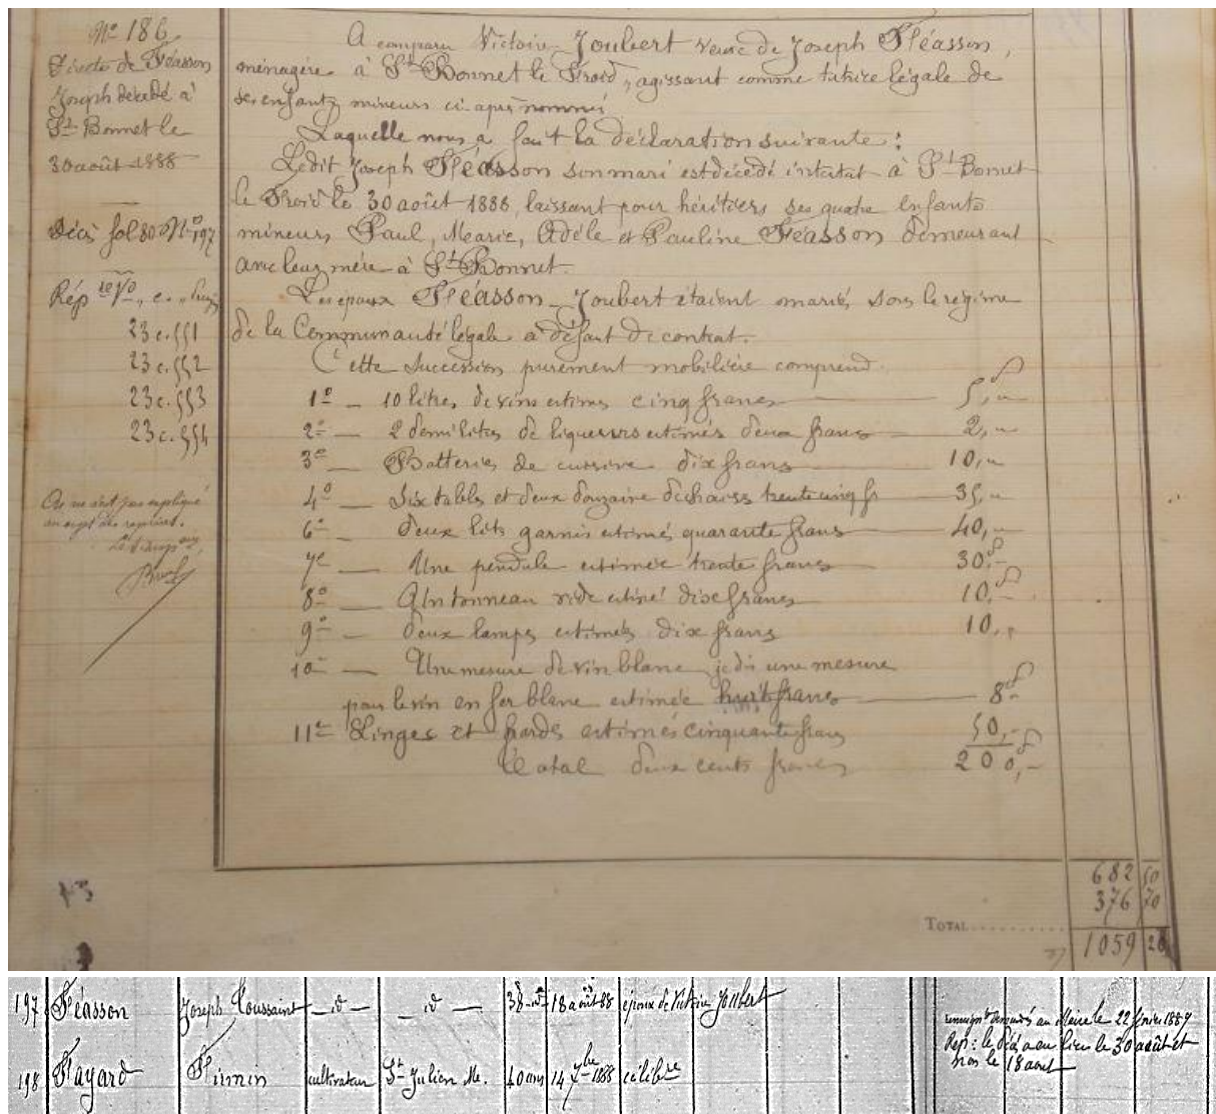 N° 186
Directe de Féasson
Joseph décédé à
St Bonnet le
30 août 1888
Décès fol 80 N° 197
Rép
23 c. 551
23 c. 552
23 c. 553
23 c. 554
On ne s'est pas expliqué
au sujet des reprises.
A comparu Victoire Joubert veuve de Joseph Féasson,
ménagère à St Bonnet le Froid, agissant comme tutrice légale de
ses enfants mineurs ci après nommés
Laquelle nous a fait la déclaration suivante :
Ledit Joseph Féasson son mari est décédé intestat à St Bonnet
le Froid le 30 août 1888, laissant pour héritiers ses quatre enfants
mineurs Paul, Marie, Adèle et Pauline Féasson demeurant
avec leur mère à St Bonnet.
Les époux Féasson-Joubert étaient mariés sous le régime
de la Communauté légale à défaut de contrat.
Cette succession purement mobilière comprend
1° — 10 litres de vins estimés cinq francs — 5,"
2° — 2 demi litres de liqueurs estimés deux francs — 2,"
3° — Batteries de cuisine dix francs — 10,"
4° — Six tables et deux douzaine de chaises trente cinq fr — 35,"
6° — deux lits garnis estimés quarante francs — 40,"
7° — Une pendule estimée trente francs — 30,"
8° — Un tonneau vide estimé dix francs — 10,"
9° — deux lampes estimées dix francs 10,"
10° — Une mesure de vin blanc je dis une mesure
pour le vin en fer blanc estimée huit francs — 8"
11° Linges et hardes estimés cinquante francs 50,"
Total deux cents francs 200,"
682 50
376 70
TOTAL.......... 1059 20
197 Féasson Joseph Toussaint — id — — id — 38 ans 18 août 88 époux de Victoire Joubert
renseignts demandés au Maire le 22 février 1889
Rép : le décès a eu lieu le 30 août et
non le 18 août
198 Fayard Firmin cultivateur St Julien M. 40 ans 14 7bre 1888 célibre